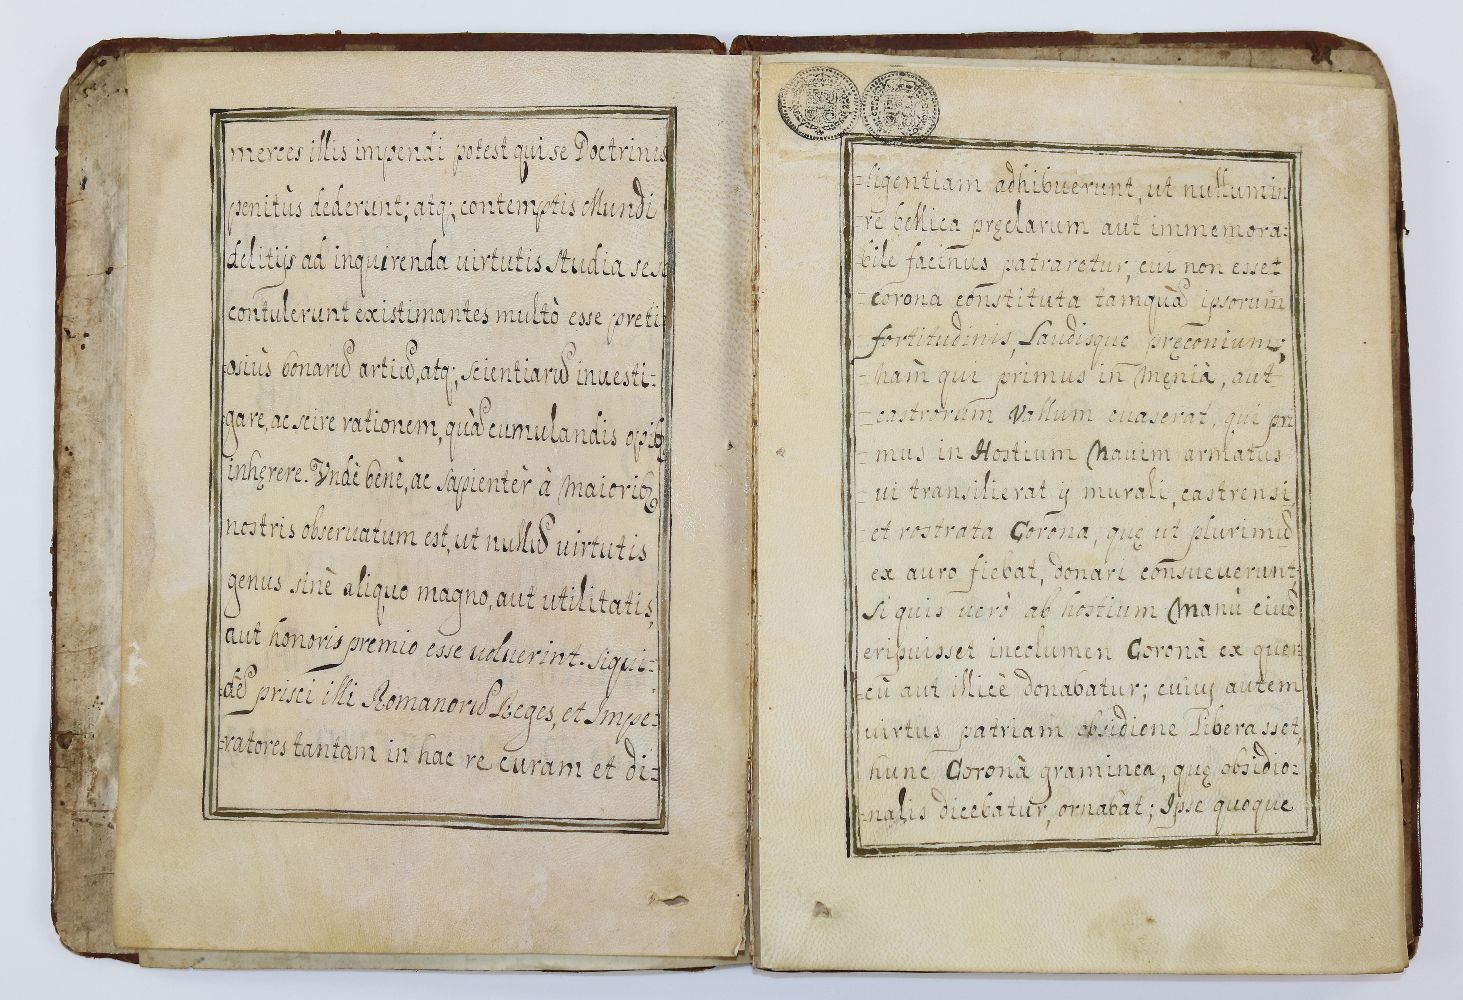 merces illis impendi potest qui se Doctrinis
penitùs dederunt; atq;, contemptis Mundi
delitijs ad inquirenda uirtutis studia sese
contulerunt existimantes multò esse preti-
osiùs bonarũ artiũ, atq; scientiarũ inuesti-
gare, ac scire rationem, quàm̃ cumulandis opibꝫ
inhęrere. Vndè benè, ac sapientèr à Maioribꝫ
nostris obseruatum est, ut nullũ uirtutis
genus sinè aliquo magno, aut utilitatis,
aut honoris premio esse uoluerint. siqui-
dẽ prisci illi Romanorũ Reges, et Impe-
ratores tantam in hac re curam et di-
ligentiam adhibuerunt, ut nullum in
re bellica pręclarum aut immemora-
bile facinus patraretur, cui non esset
corona constituta tamquã ipsorum
fortitudinis, Laudisque pręconium;
nàm qui primus in Męnià, aut
castrorum Vallum euaserat, qui pri
mus in Hostium Nauim armatus
ui transilierat ij murali, castrensi,
et rostrata Corona, quę ut plurimũ
ex auro fiebat, donari consueuerunt,
Si quis uerò ab hostium Manù ciuẽ
eripuisset incolumen Coronà ex quer-
cũ aut illicè donabatur; cuiuş autem
uirtus patriam obsidiene liberasset,
hunc Coronà graminea, quę obsidio-
nalis dicebatur, ornabat; Ipse quoque